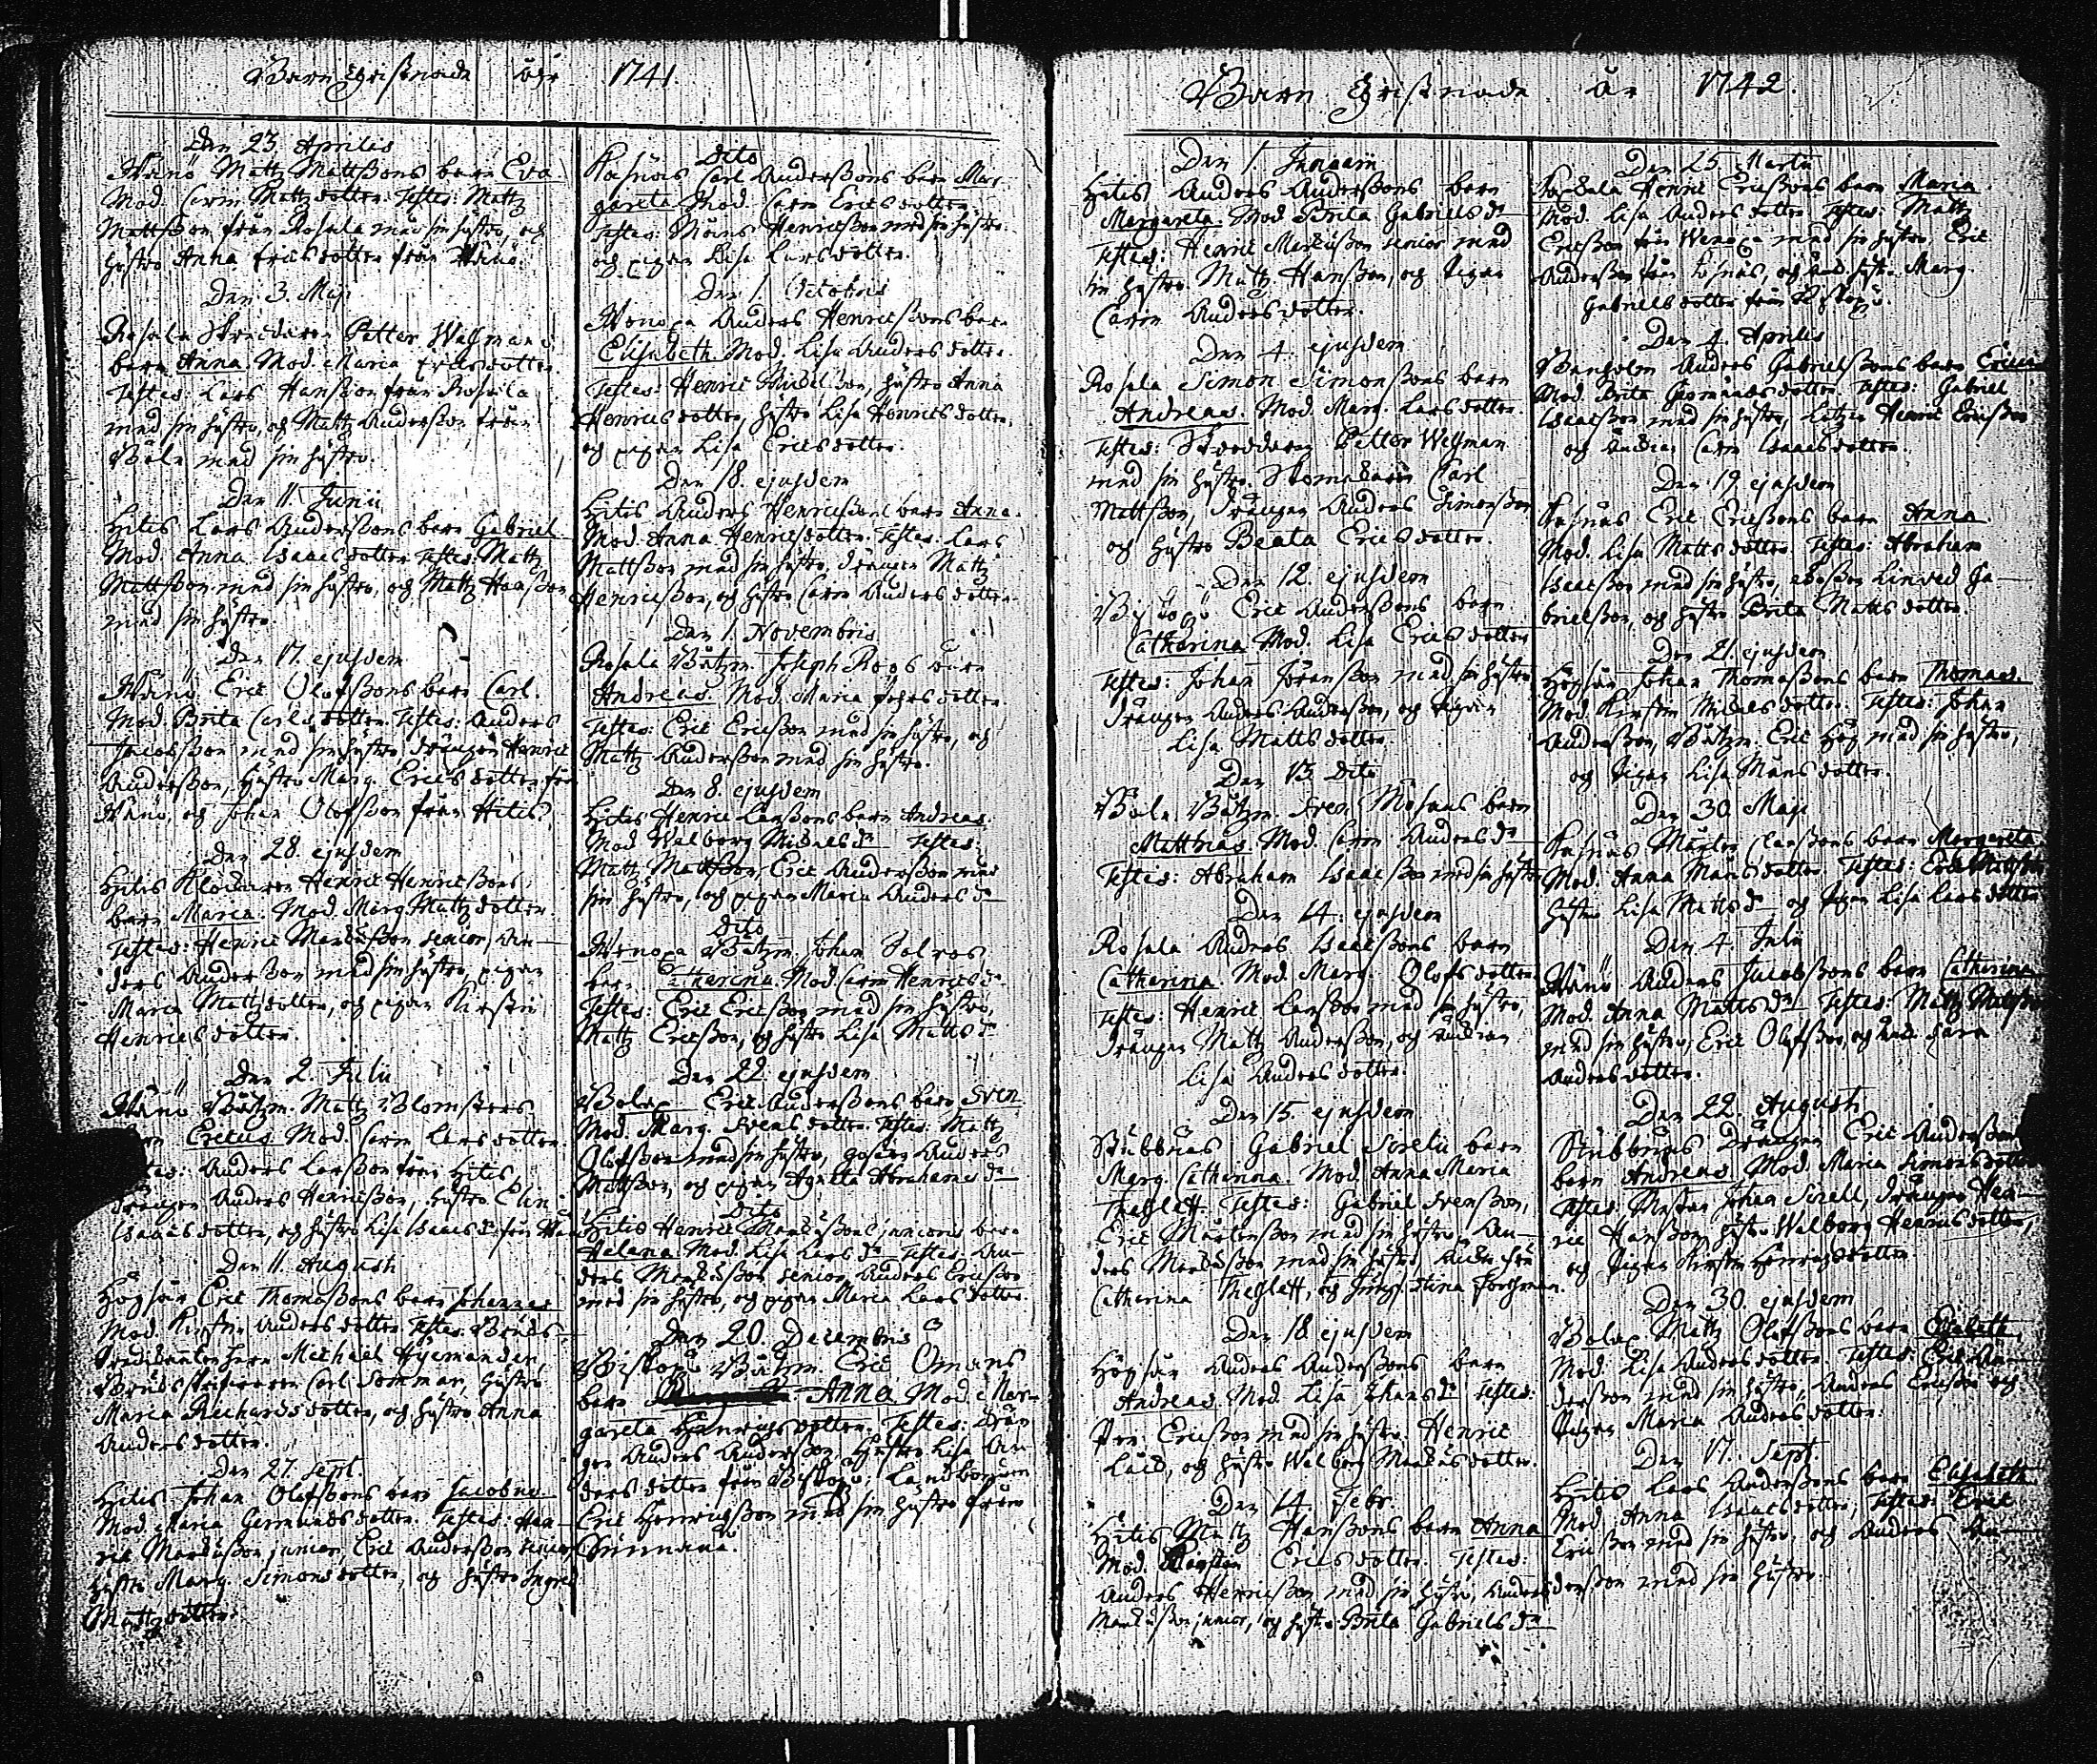 Barn Christnade åhr 1741.
Den 23. Aprilis
Wänö Matz Mattssons barn Eva.
Mod. Carin Matzdotter. Testes: Matz
Mattsson från Rosala med sin hustro, och
hustro Anna Ericsdotter från Wänö.
Den 3. Maji
Rosala Skreddaren Petter Wegmans
barn Anna. Mod. Maria Ericsdotter.
Testes: Lars Hansson från Rosala
med sin hustro, och Matz Andersson från
Böle med sin hustro.
Den 11. Junii
Hitis Lars Anderssons barn Gabriel
Mod. Anna Isaacsdotter. Testes: Matz
Mattsson med sin hustro, och Matz Hansson
med sin hustro.
Den 17. ejusdem
Wänö Eric Olofssons barn Carl.
Mod. Brita Carlsdotter. Testes: Anders
Jacobsson med sin hustro, drängen Henric
Andersson, hustro Marg. Ericsdotter från
Wänö, och Johan Olofsson från Hitis.
Den 28. ejusdem
Hitis Klockaren Henric Henricssons
barn Maria. Mod. Marg. Matzdotter.
Testes: Henric Marcusson senior, An-
ders Andersson med sin hustro, pigan
Maria Matzdotter, och pigan Kirstin
Henricsdotter.
Den 2. Julii
Wänö Båtzm. Matz Blomsters
Ericus. Mod. Carin Larsdotter.
Anders Larsson från Hitis
drängen Anders Henricsson, hustro Elin
Isaacsdotter, och hustro Lisa Isaacsdr från
Den 11. Augusti
Högsår Eric Thomassons barn Johannes
Mod. Kirstin Andersdotter. Testes: Bruds-
Predikanten herr Michael Hyemander,
Carl Sommar, hustro
Maria Richardsdotter, och hustro Anna
Andersdotter.
Den 27. Sept.
Hitis Johan Olofssons barn Jacobus.
Mod. Maria Germundsdotter. Testes: Hen-
ric Marcusson junior, Eric Andersson senior,
hustro Marg. Simonsdotter, och hustro Ingred
Matzdotter.
Dito
Kasnäs Carl Anderssons barn Mar-
gareta. Mod. Carin Ericsdotter.
Testes: Måns Henricsson med sin hustro
och pigan Lisa Larsdotter.
Den 1. Octobris
Wenoxa Anders Henricssons barn
Elisabeth. Mod. Lisa Andersdotter.
Testes: Henric Michelsson, hustro Anna
Henricsdotter, hustro Lisa Henricsdotter,
och pigan Lisa Ericsdotter.
Den 18. ejusdem
Hitis Anders Henricssons barn Anna.
Mod. Anna Henricsdotter. Testes: Lars
Mattsson med sin hustro, drängen Matz
Henricsson, och hustro Carin Andersdotter.
Den 1. Novembris
Rosala Båtzm. Joseph Roos barn
Andreas. Mod. Maria
Testes: Eric Ericsson med sin hustro, och
Matz Andersson med sin hustro.
Den 8. ejusdem
Hitis Henric Larssons barn Andreas.
Mod. Walborg Michelsdr Testes:
Matz Mattsson, Eric Andersson med
sin hustro, och pigan Maria Andersdr
Dito
Wenoxa Båtzm. Johan
barn Catharina. Mod. Carin Henricsdr
Testes: Eric Ericsson med sin hustro,
Matz Ericsson, och hustro Lisa Mattsdr
Den 22. ejusdem
Bolax Eric Anderssons barn Sven
Mod. Marg. Svensdotter. Testes: Matz
Olofsson med sin hustro, Anders
Mattsson, och pigan Agneta Abrahamsdr
Dito
Hitis Henric Marcussons junioris barn
Helena. Mod. Lisa Larsdr Testes: An-
ders Marcusson senior, Anders Ericsson
med sin hustro, och pigan Maria Larsdotter.
Den 20. Decembris
Biskopö Båtzm. Eric Omans
barn Anna Mod. Mar-
gareta Henricsdotter. Testes: Drän-
gen Anders Andersson, Hustro Lisa An-
dersdotter från Biskopö, Landbonden
Eric Henricsson med sin hustro från

Barn Christnade år 1742.
Den 1. Januarii
Hitis Anders Anderssons barn
Margareta. Mod. Brita Gabrielsdr
Testes: Henric Marcusson senior med
sin hustro. Matz Hansson, och Pigan
Carin Andersdotter.
Den 4. ejusdem
Rosala Simon Simonssons barn
Andreas. Mod. Marg. Larsdotter.
Testes: Skreddaren Petter Wegman
med sin hustro. Skomakaren Carl
Mattsson, Drängen Anders Simonsson
och hustro Beata Ericsdotter.
Den 12. ejusdem
Eric Anderssons barn
Catharina. Mod. Lisa Ericsdotter
Testes: Johan Jöransson med sin hustro
Drängen Anders Andersson, och Pigan
Lisa Mattsdotter.
Den 13. Dito
Böle Båtzm. Sven Mosaus barn
Matthias. Mod. Carin Andersdr
Testes: Abraham Isaacsson med sin hustro
Den 14. ejusdem
Rosala Anders Isaacssons barn
Catharina. Mod. Marg. Olofsdotter
Testes: Henric Larsson med sin hustro,
Drängen Matz Andersson, och Änckan
Lisa Andersdotter.
Den 15. ejusdem
Stubbnäs Gabriel Sorelii barn
Marg. Catharina. Mod. Anna Maria
Theglett. Testes: Gabriel Svensson,
Eric Mårtensson med sin hustro, An-
ders Marcusson med sin hustro,
Catharina Theglett, och Jungf. Stina Forssman.
Den 18. ejusdem
Högsår Anders Anderssons barn
Andreas. Mod. Lisa Johansdr Testes:
Per Ericsson med sin hustro. Henric
och hustro Walborg Marcusdotter.
Den 14. Febr.
Hitis Matz Hanssons barn Anna
Mod. Kerstin Ericsdotter. Testes:
Anders Henricsson med sin hustro, Anders
Marcusson junior, och hustro Brita Gabrielsdr
Den 25. Martii
Henric Ericssons barn Maria.
Mod. Lisa Andersdotter. Testes: Matz
Ericsson från Wenoxa med sin hustro, Eric
Andersson från Kasnäs, och hustro Marg.
Gabrielsdotter från Biskopö.
Den 4. Aprilis
Anders Gabrielssons barn Ericus
Mod. Brita Germundsdotter. Testes: Gabriel
Isaacsson med sin hustro, Henric Ericsson
och Änckan Carin Isaacsdotter.
Den 19. ejusdem
Kasnäs Eric Ericssons barn Anna
Mod. Lisa Mattsdotter. Testes: Abraham
Isaacsson med sin hustro, Ga-
brielsson, och hustro Brita Mattsdotter.
Den 21. ejusdem
Högsår Johan Thomassons barn Thomas.
Mod. Kirstin Michelsdotter. Testes: Johan
Andersson, Båtzm. Eric Hög med sin hustro,
och Pigan Lisa Månsdotter.
Den 30. Maji
Kasnäs Mårten Clarssons barn Margareta.
Mod. Anna Månsdotter. Testes: Eric
hustro Lisa Mattsdr och Pigan Lisa Larsdotter
Den 4. Julii
Wänö Anders Jacobssons barn Catharina
Mod. Anna Mattsdr Testes: Matz Mattsson
med sin hustro, Eric Olofsson, och Sara
Andersdotter.
Den 22. Augusti
Stubbnäs Drängen Eric Anderssons
barn Andreas. Mod. Maria Simonsdotter
Testes: Johan Sirell, Drängen Hen-
ric Hansson, hustro Walborg Henricsdotter,
och Pigan Kirstin Henricsdotter
Den 30. ejusdem
Bolax Matz Olofssons barn Elisabeth.
Mod. Lisa Andersdotter. Testes: Eric An-
dersson med sin hustro, Anders Ericsson och
Pigan Maria Andersdotter.
Den 17. Sept.
Hitis Lars Anderssons barn Elisabeth
Mod. Anna Isaacsdotter, Testes: Eric
Ericsson med sin hustro, och Anders An-
dersson med sin hustro.